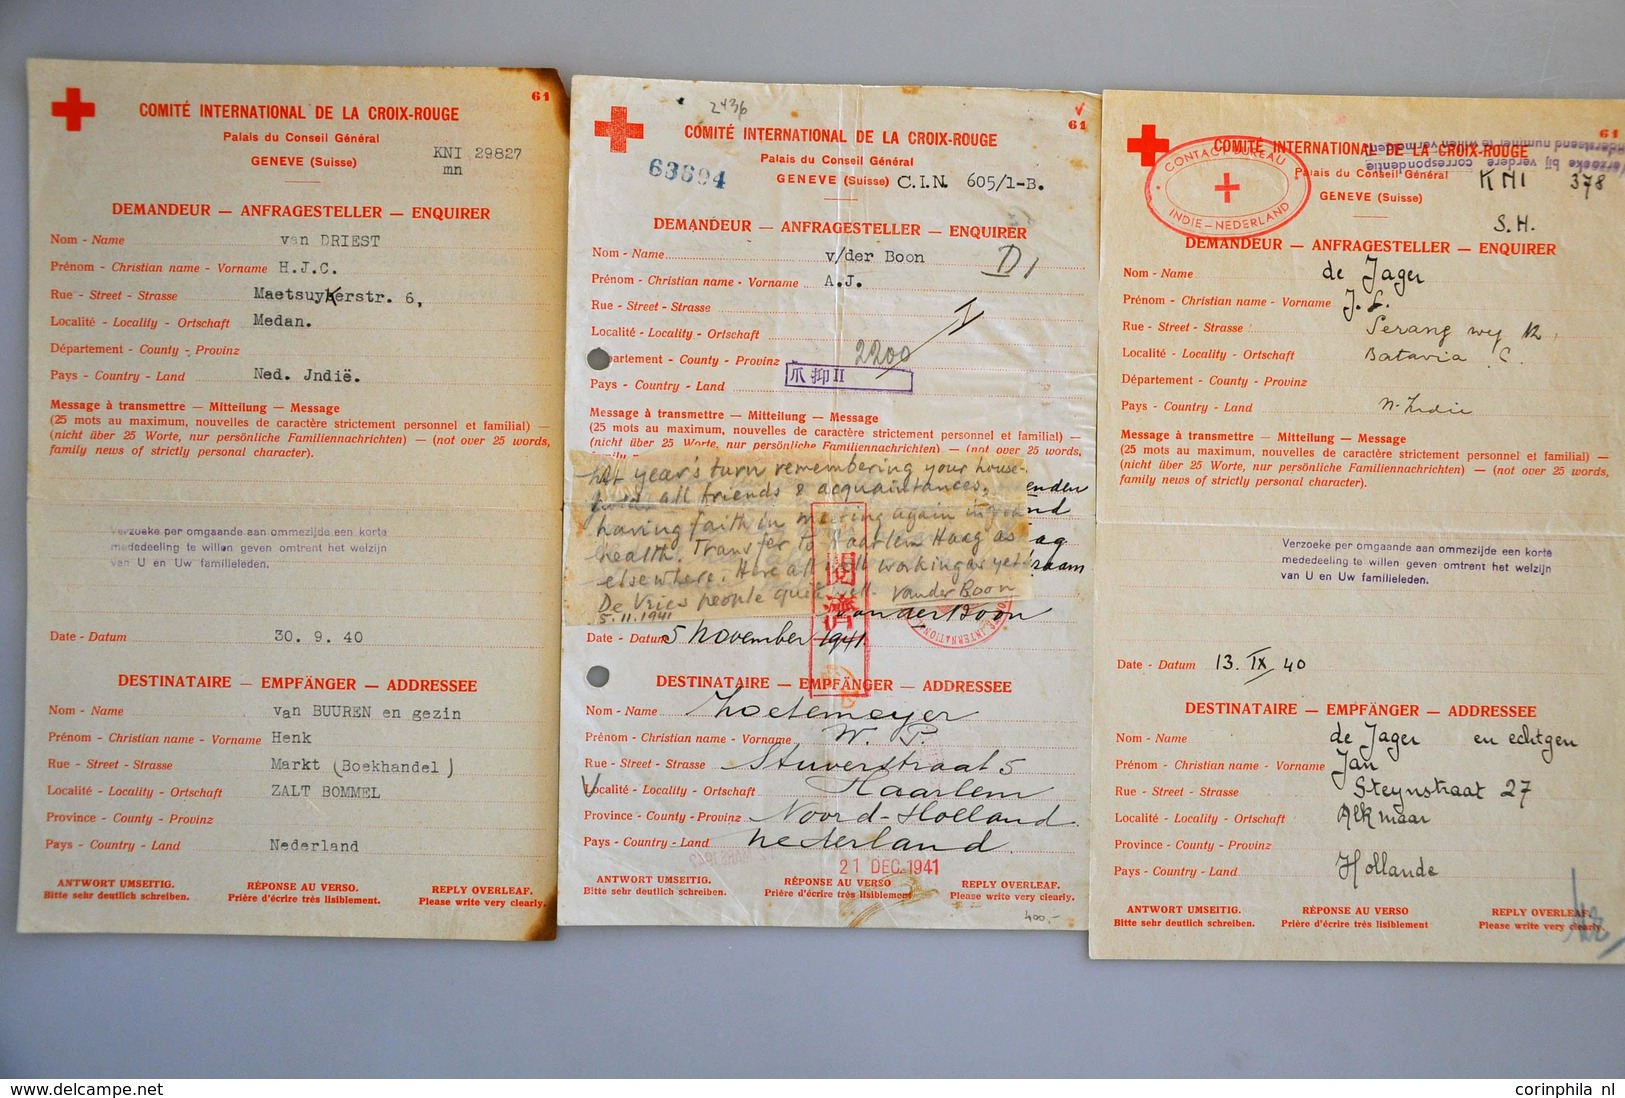 61
COMITÉ INTERNATIONAL DE LA CROIX-ROUGE
Palais du Conseil Général
GENEVE (Suisse)
KNI 29827
mn
DEMANDEUR — ANFRAGESTELLER — ENQUIRER
Nom - Name van DRIEST
Prénom - Christian name - Vorname H.J.C.
Rue - Street - Strasse Maetsuykerstr. 6,
Localité - Locality - Ortschaft Medan.
Département - County - Provinz
Pays - Country - Land Ned. Jndië.
Message à transmettre — Mitteilung — Message
(25 mots au maximum, nouvelles de caractère strictement personnel et familial) —
(nicht über 25 Worte, nur persönliche Familiennachrichten) — (not over 25 words,
family news of strictly personal character).
Verzoeke per omgaande aan ommezijde een korte
mededeeling te willen geven omtrent het welzijn
van U en Uw familieleden.
Date - Datum 30. 9. 40
DESTINATAIRE — EMPFÄNGER — ADDRESSEE
Nom - Name van BUUREN en gezin
Prénom - Christian name - Vorname Henk
Rue - Street - Strasse Markt (Boekhandel)
Localité - Locality - Ortschaft ZALT BOMMEL
Province - County - Provinz
Pays - Country - Land Nederland
ANTWORT UMSEITIG. RÉPONSE AU VERSO. REPLY OVERLEAF.
Bitte sehr deutlich schreiben. Prière d'écrire très lisiblement. Please write very clearly.
2436
61
COMITÉ INTERNATIONAL DE LA CROIX-ROUGE
Palais du Conseil Général
63694
GENEVE (Suisse) C.I.N. 605/1-B.
DEMANDEUR — ANFRAGESTELLER — ENQUIRER
Nom - Name v/der Boon
D1
Prénom - Christian name - Vorname A.J.
Rue - Street - Strasse
Localité - Locality - Ortschaft
partement - County - Provinz 2200
Pays - Country - Land
爪 抑 II
Message à transmettre — Mitteilung — Message
(25 mots au maximum, nouvelles de caractère strictement personnel et familial) —
(nicht über 25 Worte, nur persönliche Familiennachrichten) — (not over 25 words,
At year's turn remembering your house-
all friends & acquaintances,
having faith in meeting again in good
health. Transfer to Haarlem Haag as
elsewhere. Here all well working as yet.
De Vries people quite well. vanderBoon
5.11.1941
enden
nd
ag
zaam
閲
濟
van der Boon
Date - Datum 5 November 1941
DESTINATAIRE — EMPFÄNGER — ADDRESSEE
Nom - Name Zwetemeyer
Prénom - Christian name - Vorname W. P.
Rue - Street - Strasse Stuverstraat 5
Localité - Locality - Ortschaft Haarlem
Province - County - Provinz Noord-Holland
Pays - Country - Land Nederland
21 DEC. 1941
ANTWORT UMSEITIG. RÉPONSE AU VERSO REPLY OVERLEAF.
Bitte sehr deutlich schreiben. Prière d'écrire très lisiblement Please write very clearly.
400,-
61
COMITÉ INTERNATIONAL DE LA CROIX-ROUGE
Verzoeke bij verdere correspondentie
onderstaand nummer te willen vermelden
CONTACT BUREAU
INDIE-NEDERLAND
Palais du Conseil Général
GENEVE (Suisse)
KNI 378
S.H.
DEMANDEUR — ANFRAGESTELLER — ENQUIRER
Nom - Name de Jager
Prénom - Christian name - Vorname J. L.
Rue - Street - Strasse Serang weg 12
Localité - Locality - Ortschaft Batavia C.
Département - County - Provinz
Pays - Country - Land N. Indie
Message à transmettre — Mitteilung — Message
(25 mots au maximum, nouvelles de caractère strictement personnel et familial) —
(nicht über 25 Worte, nur persönliche Familiennachrichten) — (not over 25 words,
family news of strictly personal character).
Verzoeke per omgaande aan ommezijde een korte
mededeeling te willen geven omtrent het welzijn
van U en Uw familieleden.
Date - Datum 13. IX. 40
DESTINATAIRE — EMPFÄNGER — ADDRESSEE
Nom - Name de Jager en echtgen
Prénom - Christian name - Vorname Jan
Rue - Street - Strasse Steynstraat 27
Localité - Locality - Ortschaft Alkmaar
Province - County - Provinz
Pays - Country - Land Hollande
ANTWORT UMSEITIG. RÉPONSE AU VERSO REPLY OVERLEAF.
Bitte sehr deutlich schreiben. Prière d'écrire très lisiblement Please write very clearly.
corinphila nl